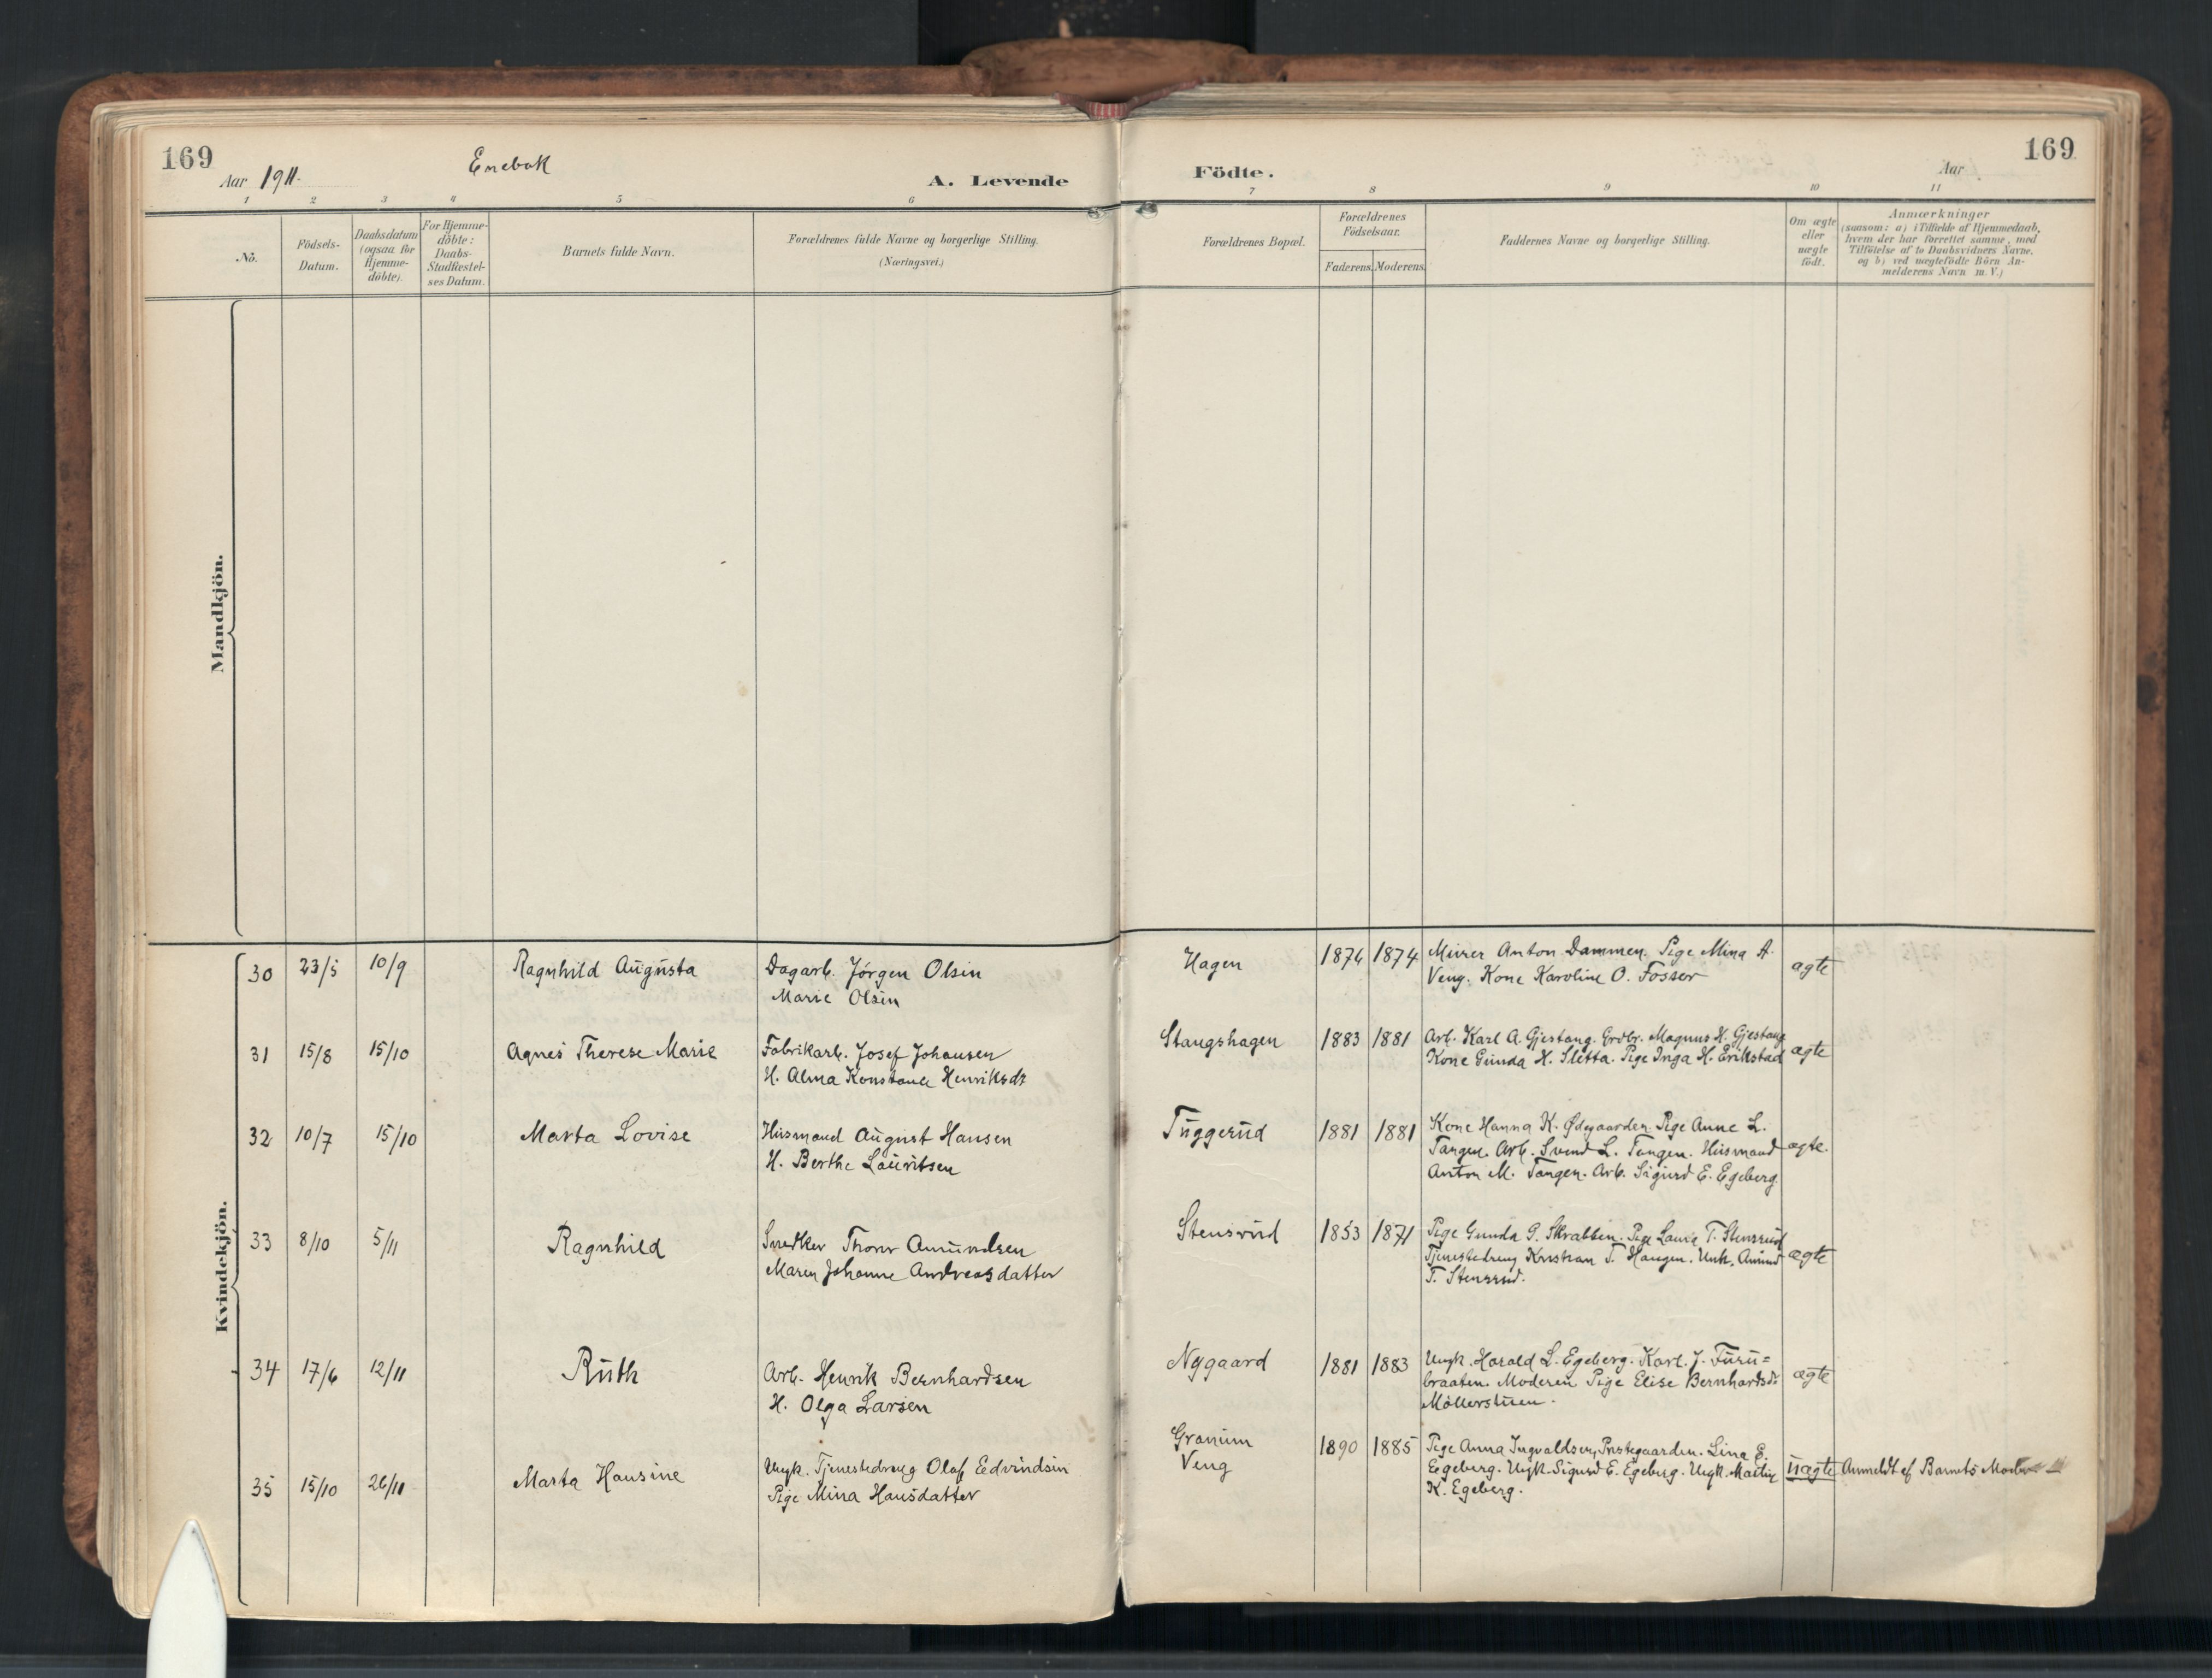 169
Aar 1911.
Enebak
A. Levende
Födte.
Aar
169
1 2 3 4 5 6 7 8 9 10 11
No.
Födsels-
Datum.
Daabsdatum
(ogsaa for
Hjemme-
döbte).
For Hjemme-
döbte:
Daabs-
Stadfæstel-
ses Datum.
Barnets fulde Navn.
Forældrenes fulde Navne og borgerlige Stilling.
(Næringsvei.)
Forældrenes Bopæl.
Forældrenes
Födselsaar.
Faderens. Moderens.
Faddernes Navne og borgerlige Stilling.
Om ægte
eller
uægte
födt.
Anmærkninger
(saasom: a) i Tilfælde af Hjemmedaab,
hvem der har forrettet samme, med
Tilföielse af to Daabsvidners Navne.
og b) ved uægtefödte Börn An-
melderens Navn m. V.)
Mandkjön.
Kvindekjön.
30 23/5 10/9
Ragnhild Augusta
Dagarb. Jörgen Olsen
Marie Olsen
Hagen
1876 1874
Murer Anton Dammen. Pige Mina A.
Veng. Kone Karoline O. Fosser
ægte
31 15/8 15/10
Agnes Therese Marie
Fabrikarb. Josef Johansen
H. Alma Konstance Henriksdt
Stangshagen
1883 1881
Arb. Karl A. Gjestang. Grdbr. Magnus H. Gjestang
Kone Gunda H. Sletta. Pige Inga H. Erikstad
ægte
32 10/7 15/10
Marta Lovise
Husmand August Hansen
H. Berthe Lauritsen
Tuggerud
1881 1881
Kone Hanna K. Ødegaarden. Pige Anne L.
Tangen. Arb. Svend L. Tangen. Husmand
Anton M. Tangen. Arb. Sigurd E. Egeberg
ægte.
33 8/10 5/11
Ragnhild
Snedker Thorer Amundsen
Maren Johanne Andreasdatter
Stensrud
1853 1871
Pige Gunda G. Skrabben. Pige Laura T. Stensrud
Tjenestedreng Kristian T. Haugen. Unk. Amund
T. Stensrud.
ægte
34 17/6 12/11
Ruth
Arb. Henrik Bernhardsen
H. Olga Larsen
Nygaard
1881 1883
Ungk. Harald L. Egeberg. Karl. J. Furu=
braaten. Moderen Pige Elise Bernhardsdr
Möllerstuen.
ægte
35 15/10 26/11
Marta Hansine
Ungk. Tjenestedreng Olaf Edvindsen
Pige Mina Hansdatter
Granum
Veng
1890 1885
Pige Anna Ingvaldsen, Prestegaarden. Lina E.
Egeberg. Ungk. Sigurd E. Egeberg. Ungk. Martin
K. Egeberg.
uægte
Anmeldt af Barnets Moder